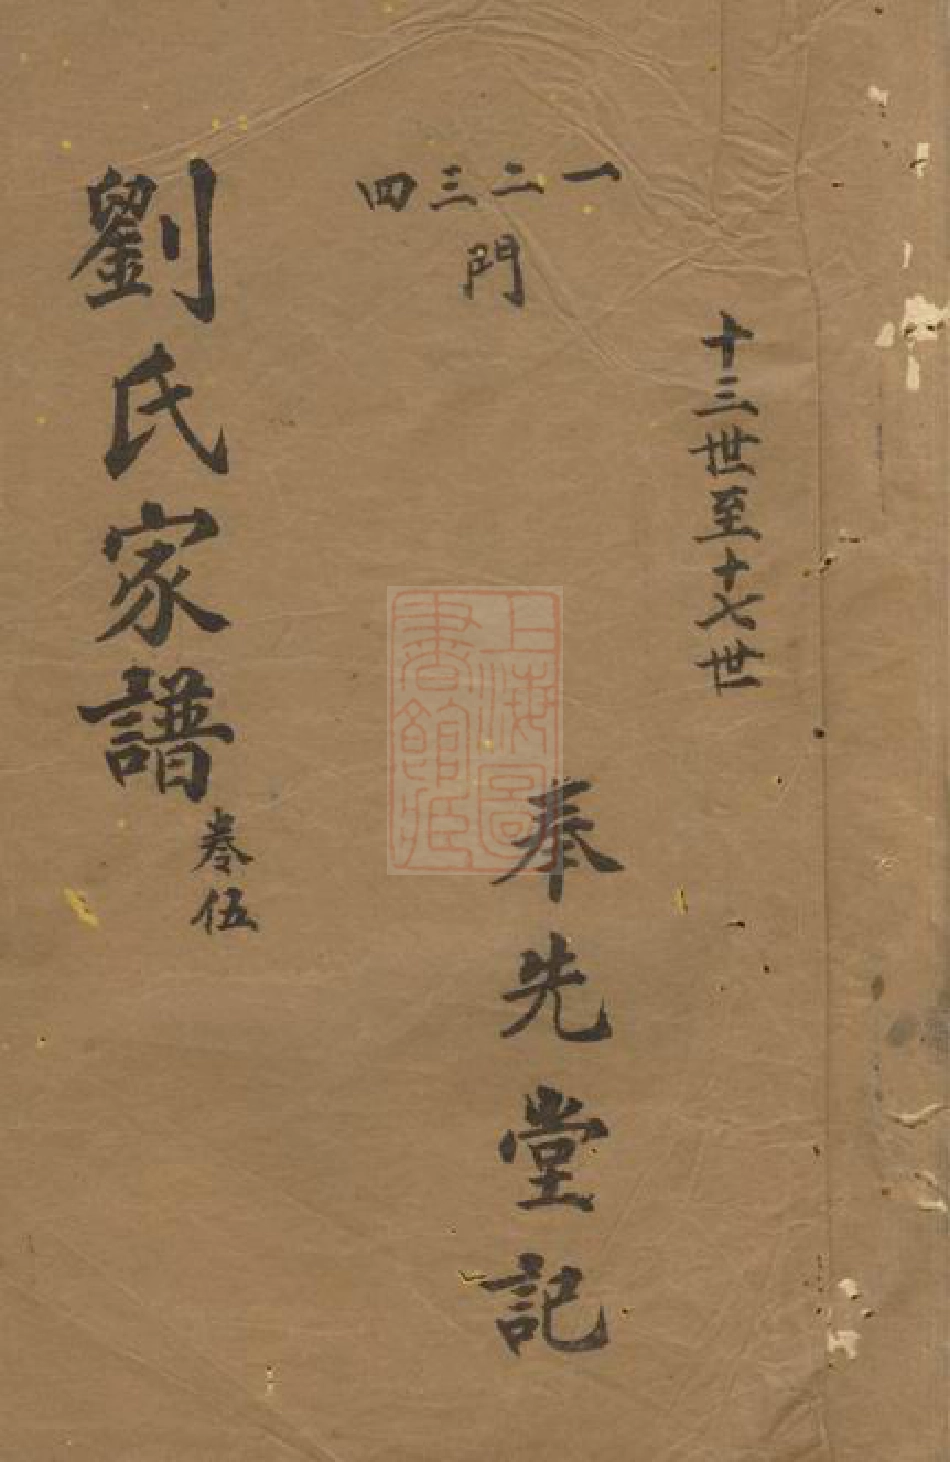 十三世至十七世
一二三四
門
奉先堂記
劉氏家譜
卷伍
上海圖書館藏